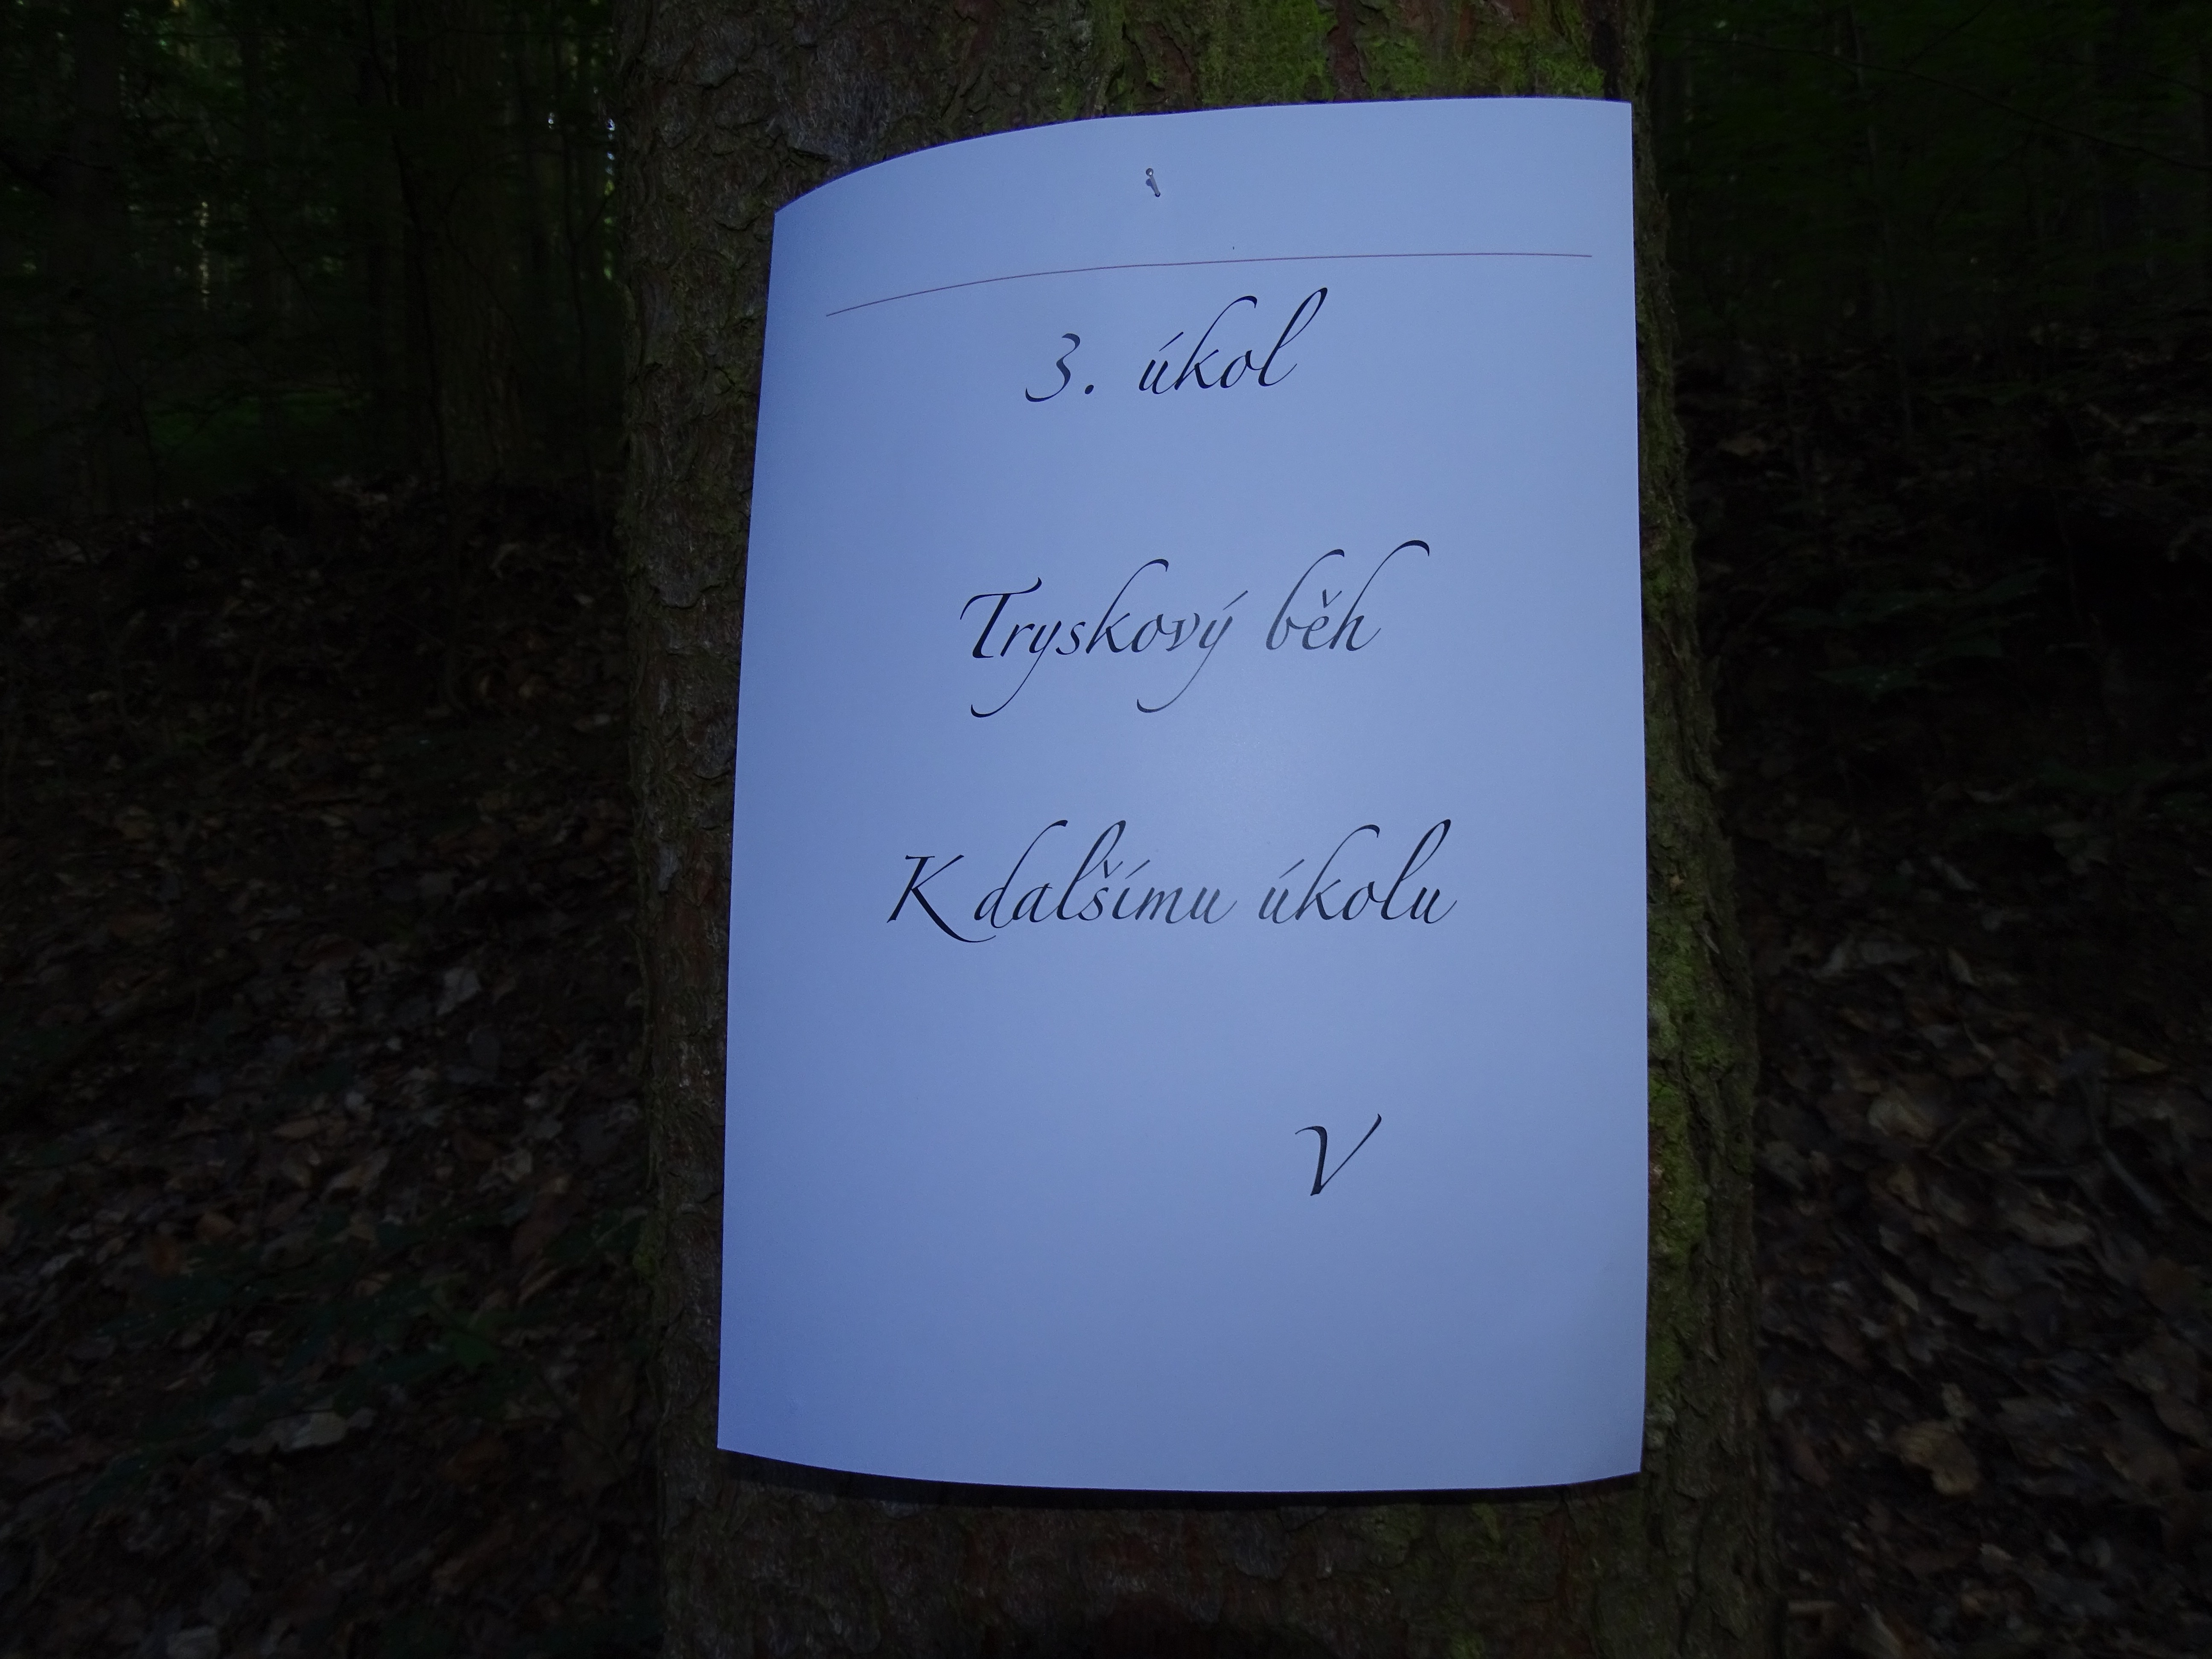 3. úkol
Tryskový běh
K dalšímu úkolu
V